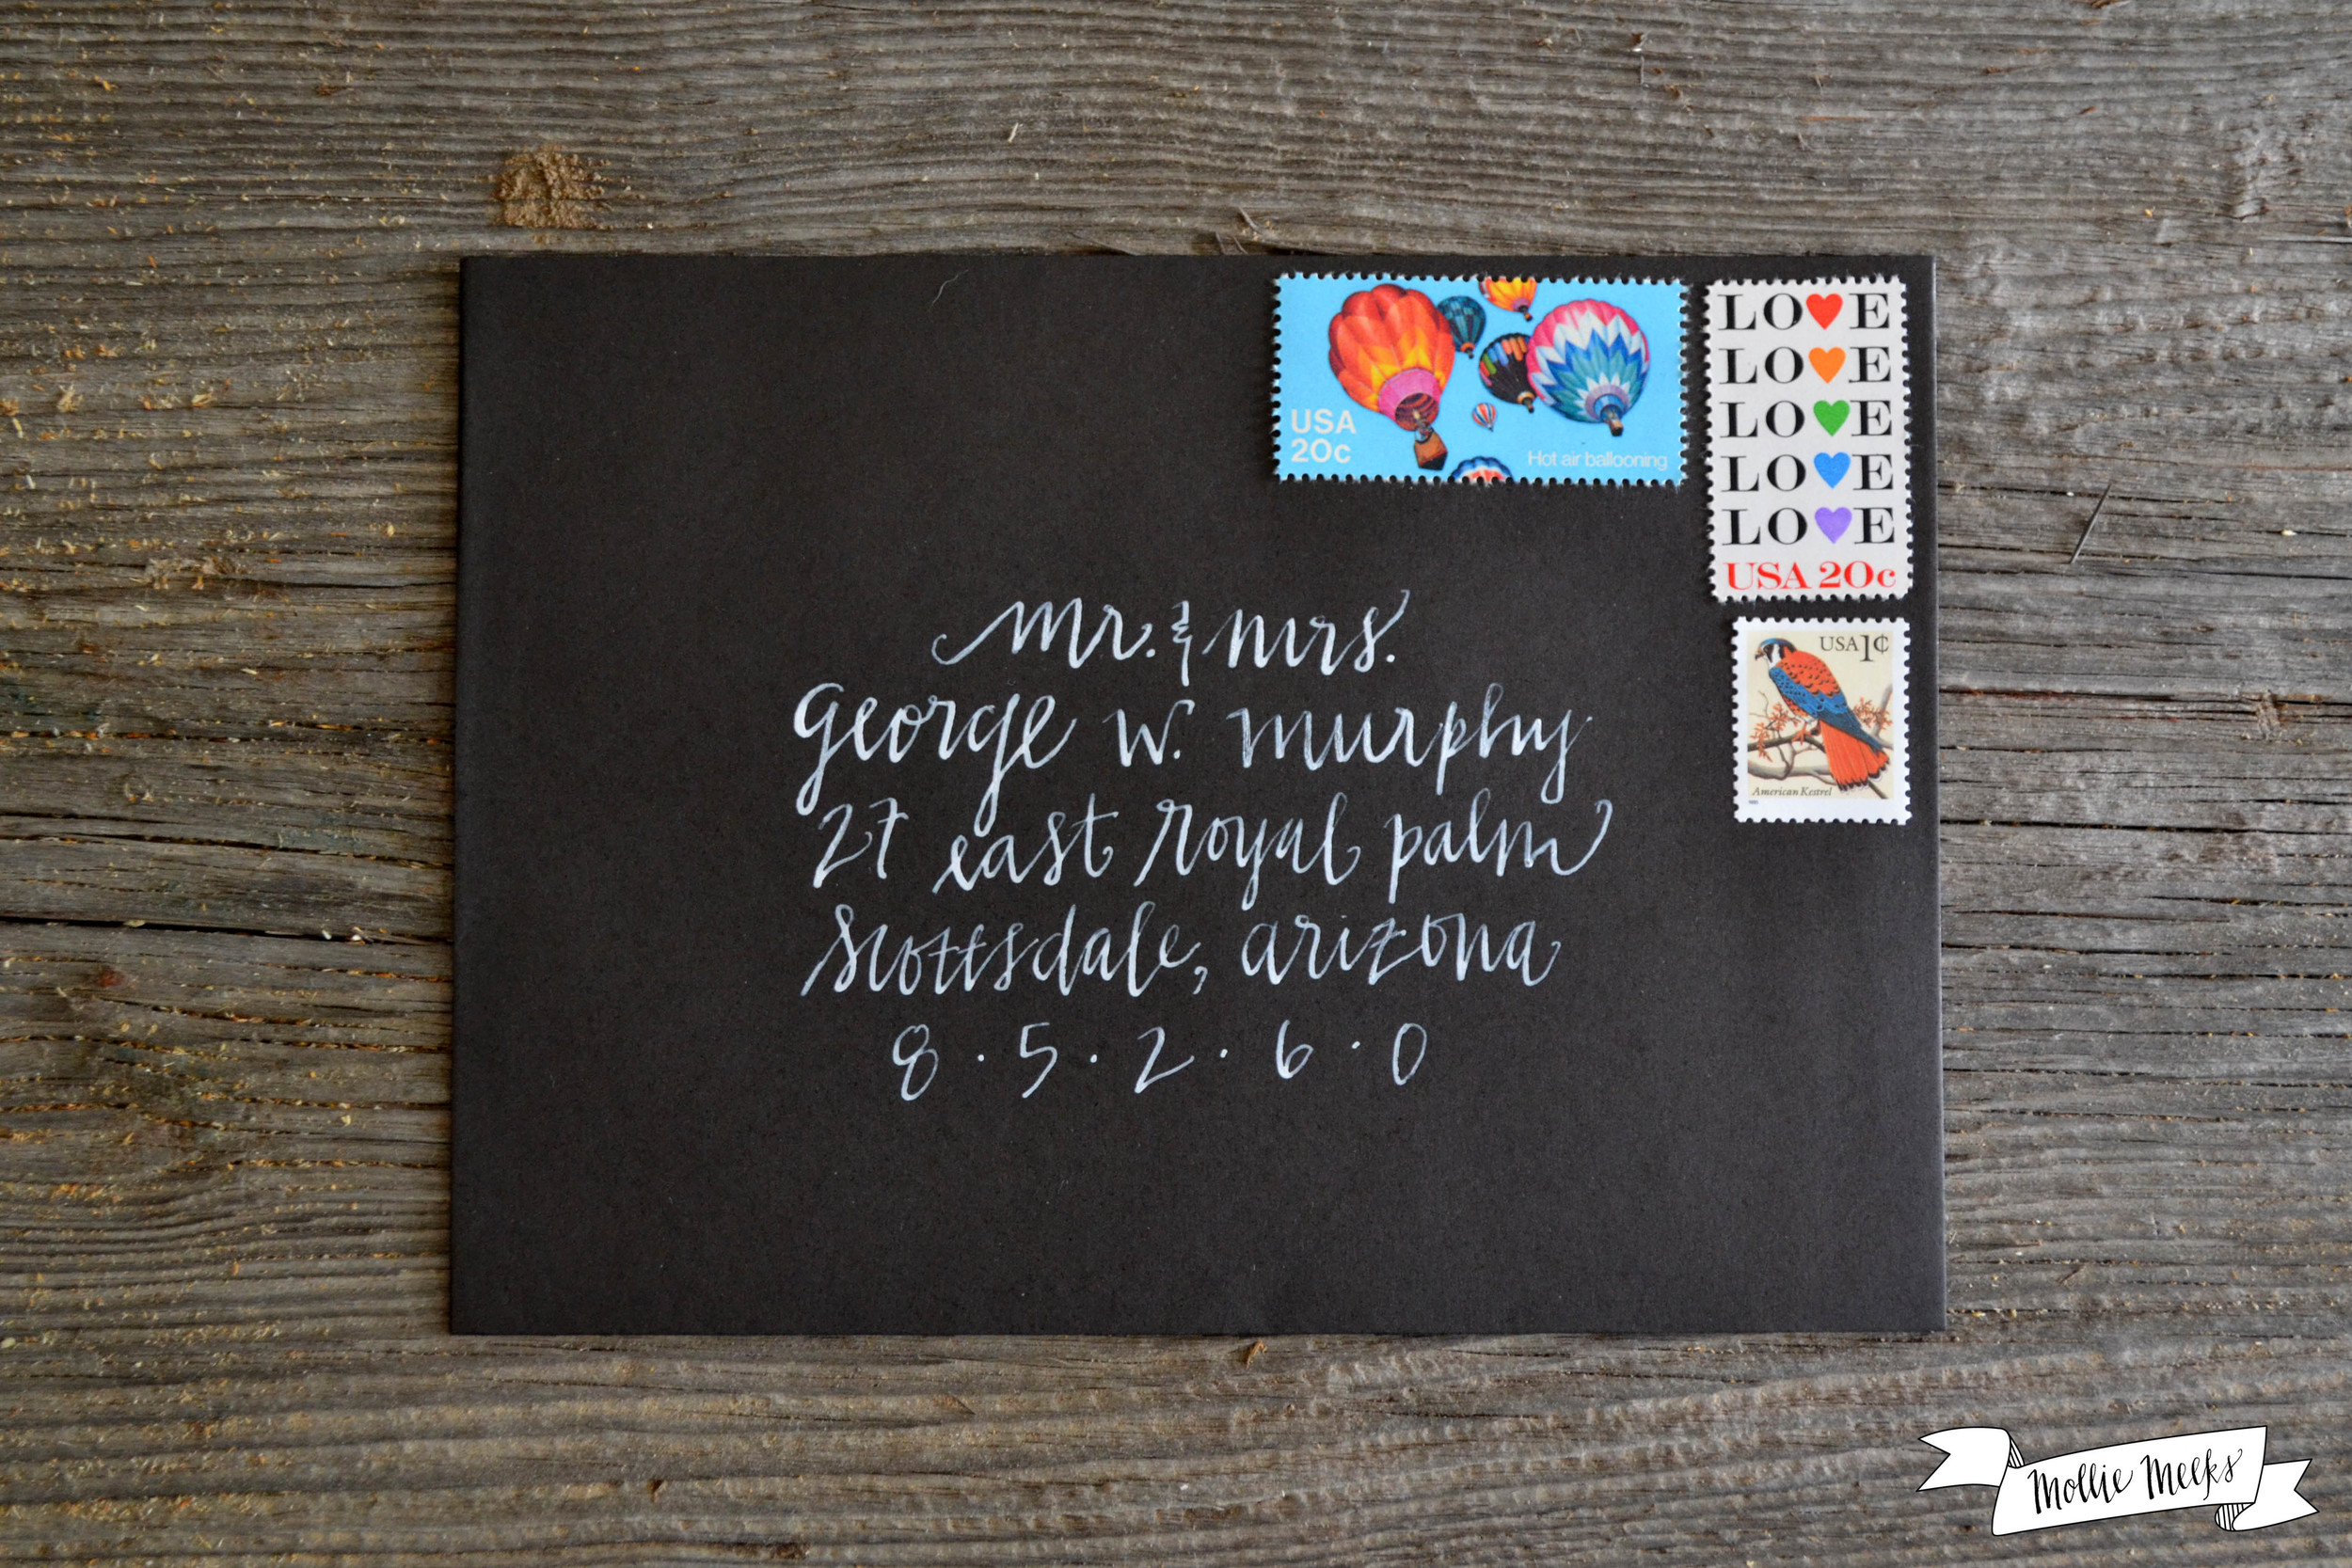 USA
20c
Hot air ballooning
LO♥E
LO♥E
LO♥E
LO♥E
LO♥E
USA 20c
USA 1¢
American Kestrel
mr. & mrs.
george w. murphy
27 east royal palm
scottsdale, arizona
8 · 5 · 2 · 6 · 0
Mollie Meeks